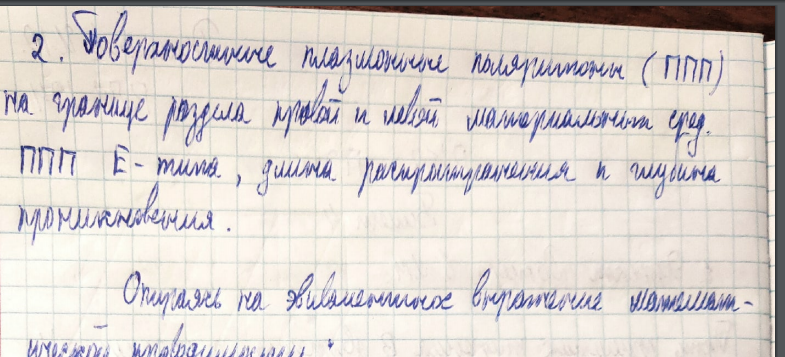 2. Поверхностные плазмонные поляритоны (ППП)
на границе раздела правой и левой материальных сред.
ППП Е-типа, длина распространения и глубина
проникновения.
Опираясь на эквивалентное выражение